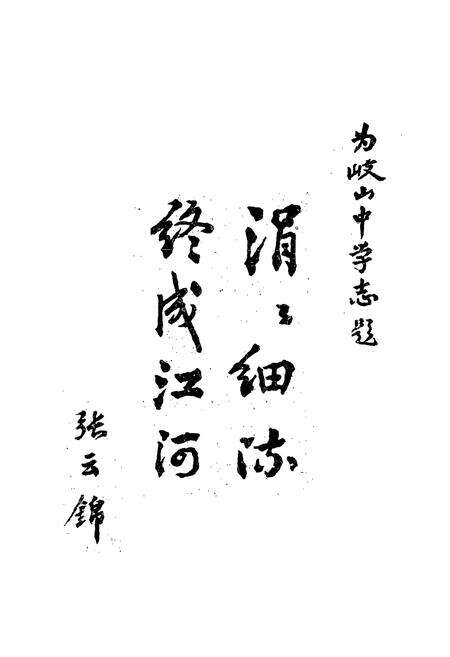 为岐山中学志题
涓々细流
终成江河
张云锦